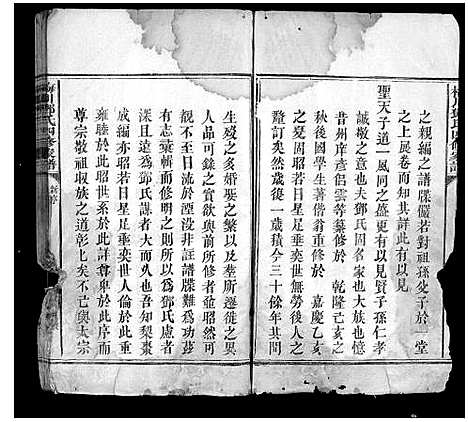 之親編之譜牒儼若對祖孫父子於一堂
之上展卷而知其詳此有以見
聖天子道一風同之盛更有以見賢子孫仁孝
誠敬之意也夫鄧氏固名家也大族也憶
昔州岸彥侶雲等纂修於　乾隆己亥
秋後國學生著偕翁重修於　嘉慶乙亥
之間固昭若日星足垂奕世無勞後人之
釐訂矣然歲復一歲積今三十餘年其間
生殁之多婚娶之繁以及塋所遷徙之異
人品可錄之實欲與前所修者並昭然可
觀於來日于流於湮沒非註譜牒難爲功茲
有志彙輯而修明之則所以爲鄧氏慮者
深且遠爲鄧氏謀者大而久也吾知梨棗
成編亦昭若日星足垂奕世人倫於此重
雍睦於此昭世系於此詳尊卑於此序而
尊宗敬祖收族之道彰彰矣不已與大宗
梅川鄧氏四修宗譜